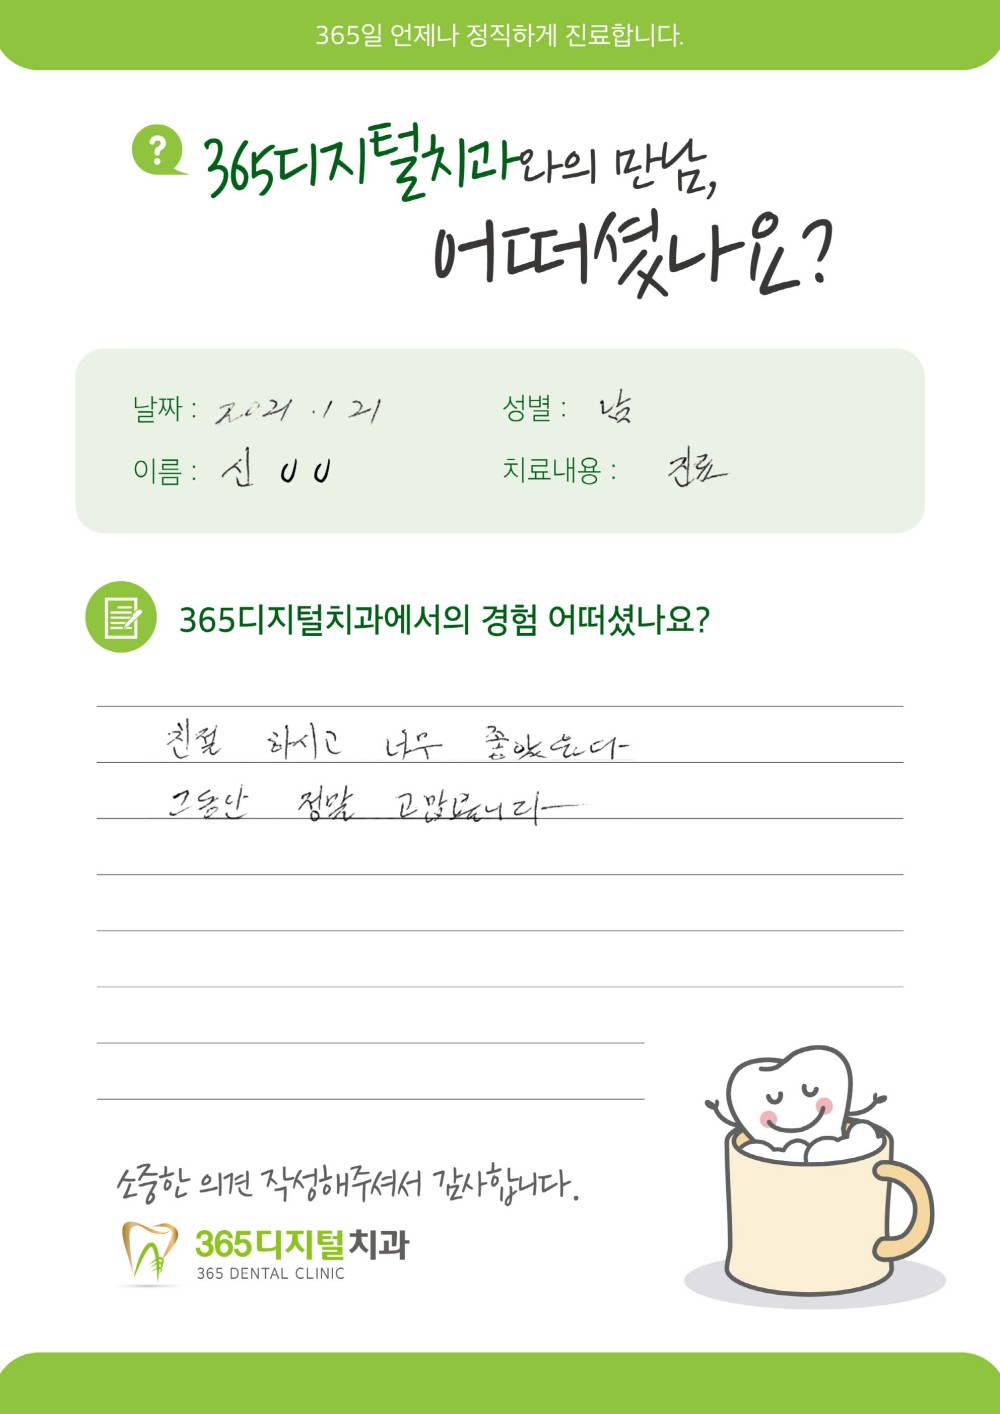 365일 언제나 정직하게 진료합니다.
?
365디지털치과와의 만남,
어떠셨나요?
날짜 : 2021 . 1 21
성별 : 남
이름 : 신 U U
치료내용 : 진료
365디지털치과에서의 경험 어떠셨나요?
친절 하시고 너무
그동안 정말
소중한 의견 작성해주셔서 감사합니다.
365디지털치과
365 DENTAL CLINIC